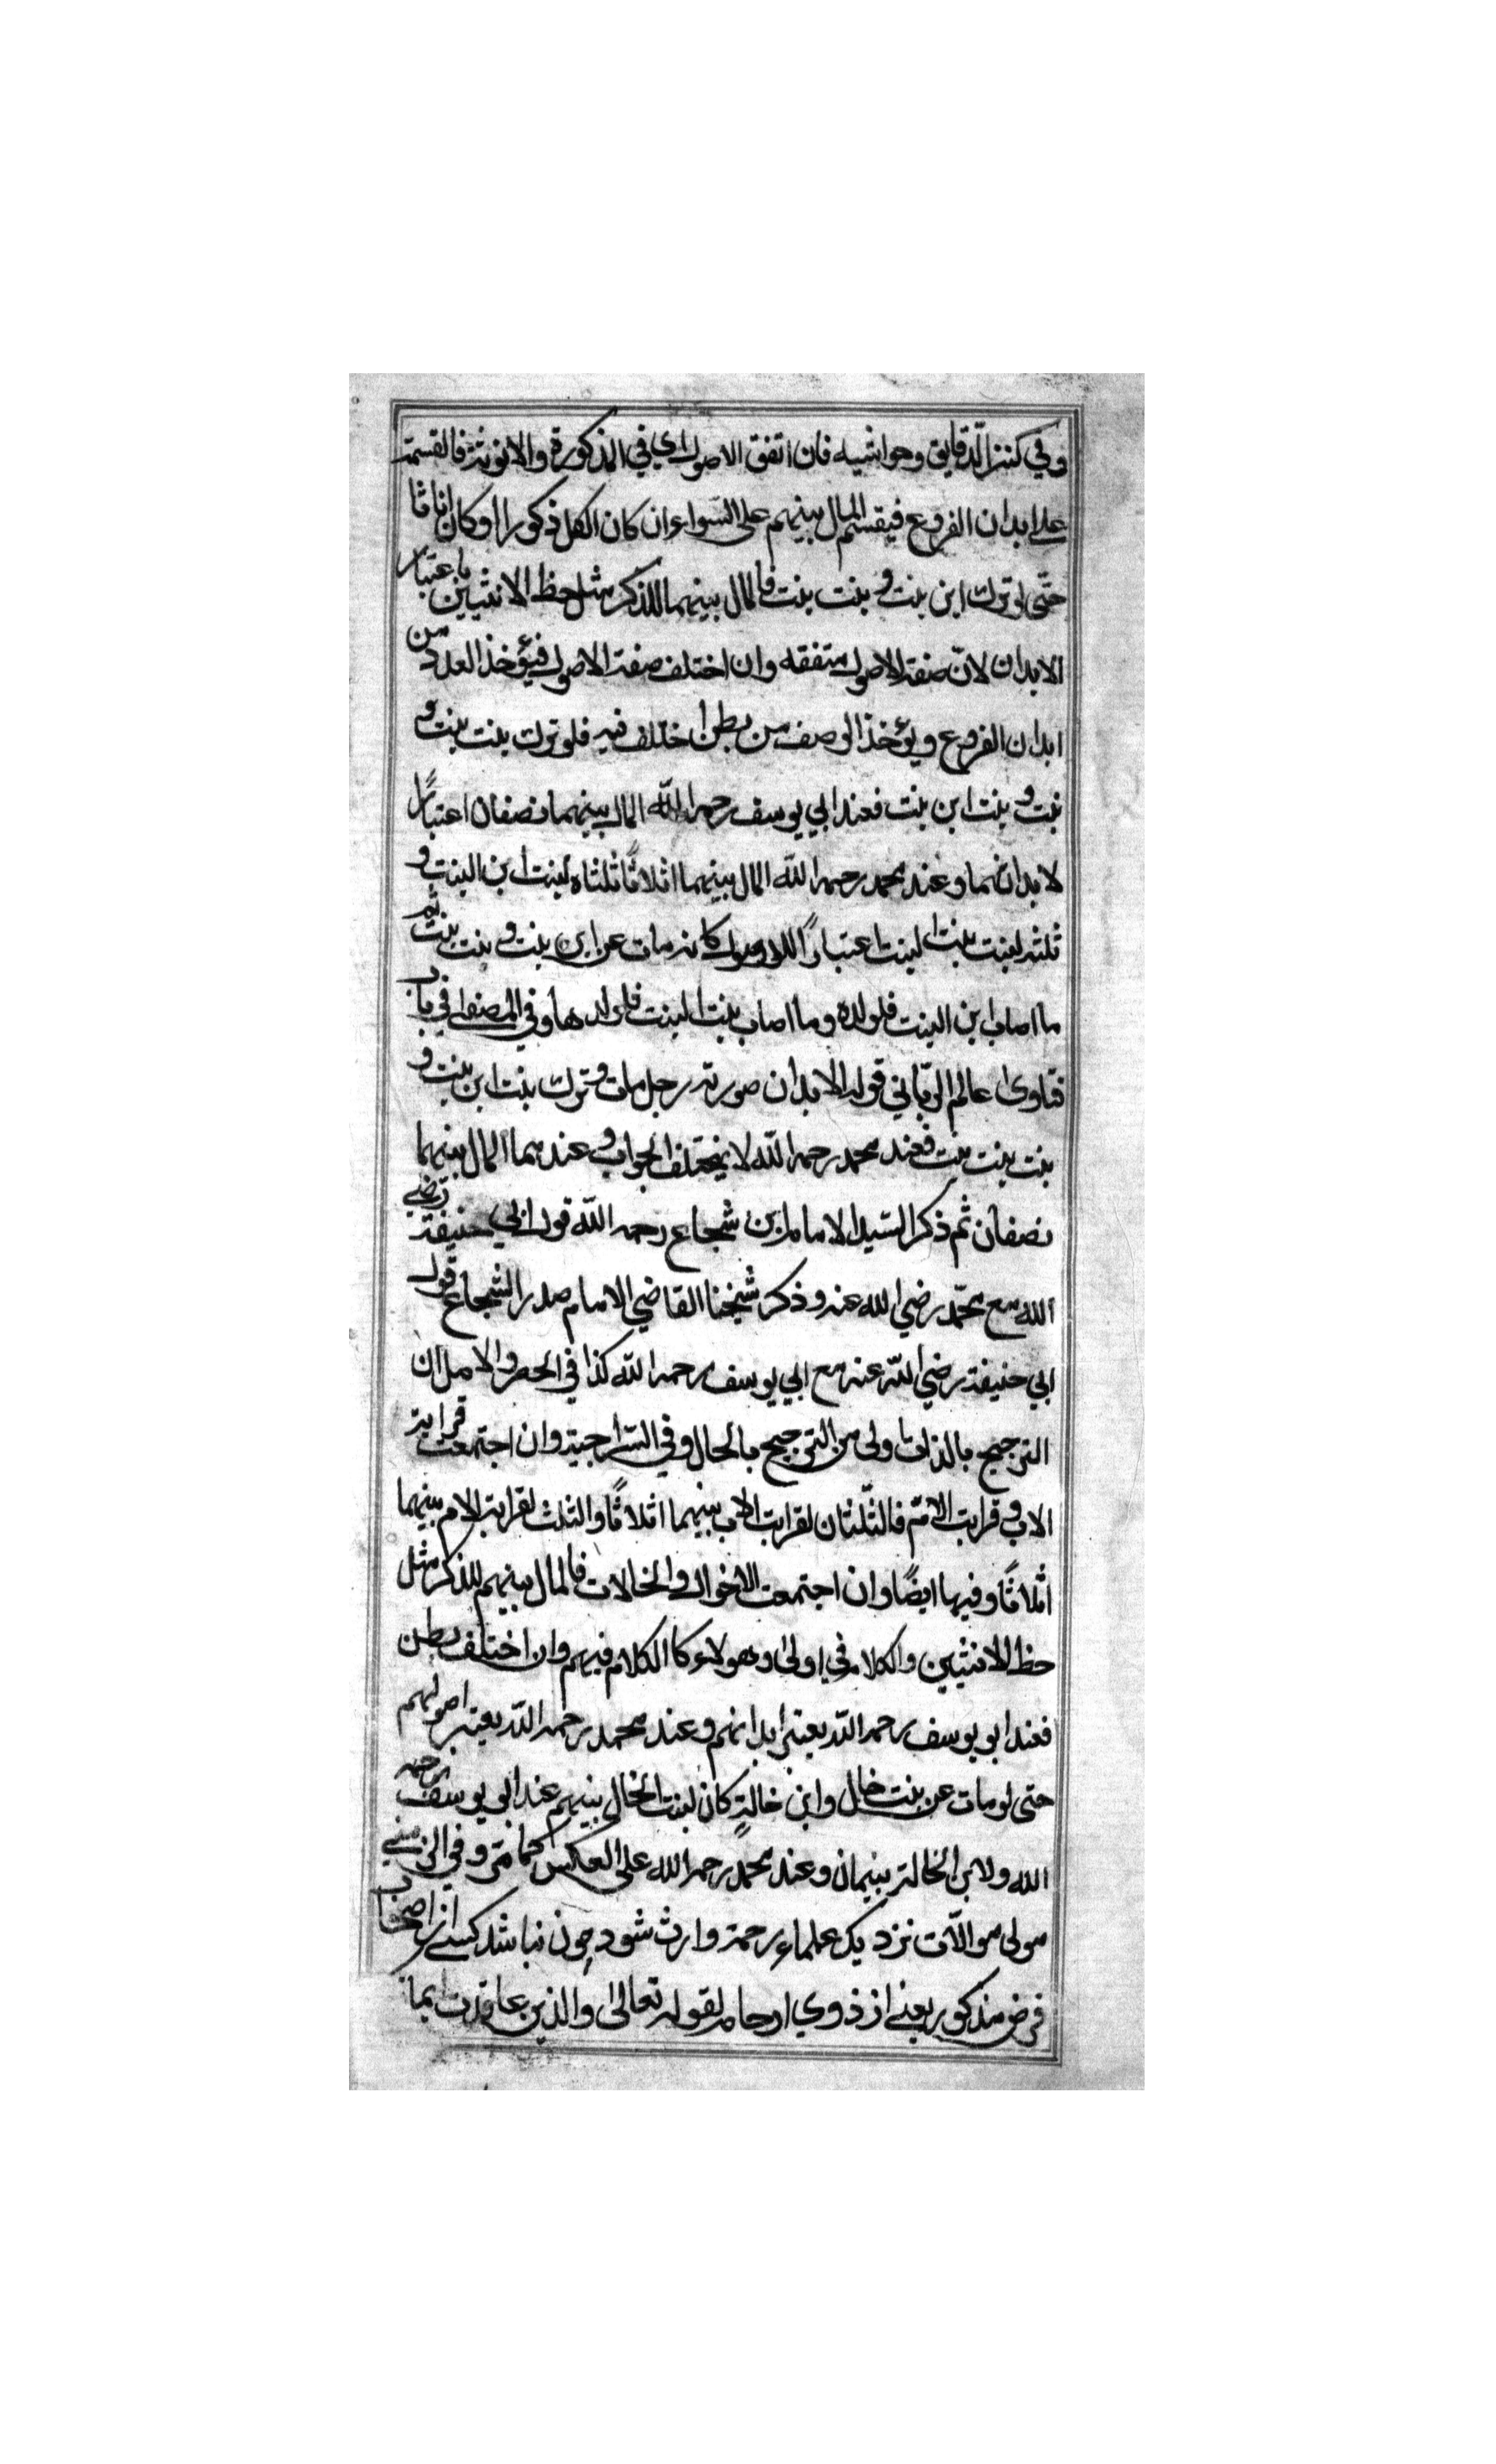 وفي كنز الدّقايق وحواشيه فان اتفق الاصول اي في الذكورة والانوثة فالقسمة
على ابدان الفروع فيقسم المال بينهم على السّواء ان كان الكل ذكورا او كان اناثا
حتّى لو ترك ابن بنت و بنت بنت فالمال بينهما للذكر مثل حظ الانثيين باعتبار
الابدان لانّ صفة الاصول متفقه وان اختلف صفة الاصول فيؤخذ العدد من
ابدان الفروع ويؤخذ الوصف من بطن اختلف فيه فلو ترك بنت بنت و
بنت و بنت ابن بنت فعند ابي يوسف رحمه اللّه المال بينهما نصفان اعتبارًا
لابدانهما وعند محمد رحمه اللّه المال بينهما اثلاثًا ثلثاه لبنت ابن البنت و
ثلثه لبنت بنت البنت اعتبارًا للاصول كانه مات عن ابن بنت و بنت بنت ثم
ما اصاب ابن البنت فلولده وما اصاب بنت البنت فلولدها وفي المصفى في باب
فتاوى عالم الربّاني قوله الابدان صورته رجل مات وترك بنت ابن بنت و
بنت بنت بنت فعند محمد رحمه اللّه لا يختلف الجواب وعندهما المال بينهما
نصفان ثم ذكر السّيد الامام ابن شجاع رحمه اللّه قول ابي حنيفة رضي
اللّه مع محمّد رضي اللّه عنه وذكر شيخنا القاضي الامام صدر الشجاع قول
ابي حنيفة رضي اللّه عنه مع ابي يوسف رحمه اللّه كذا في الحصر والاصل ان
الترجيح بالذات اولى من الترجيح بالحال وفي السّراجية وان اجتمعت قرابة
الاب و قرابت الامّ فالثّلثان لقرابت الاب بينهما اثلاثًا والثلث لقرابة الام بينهما
اثلاثًا وفيها ايضًا وان اجتمعت الاخوال والخالات فالمال بينهم للذكر مثل
حظ الانثيين والكلام في اولاد هولاء كا الكلام فيهم وان اختلف بطن
فعند ابو يوسف رحمه اللّه يعتبر ابدانهم وعند محمد رحمه اللّه يعتبر اصولهم
حتى لو مات عن بنت خال وابن خالةٍ كان لبنت الخال بينهم عند ابي يوسف رحمه
اللّه ولابن الخالة بينهمان وعند محمّد رحمه اللّه على العكس كما مرّ وفي
مولى موالات نزديك علماء رحمة وارث شود چون نباشد كسے از اصحاب
فرض مذكور يعنے از ذوي ارحام لقوله تعالى والذين عاقدت ايما